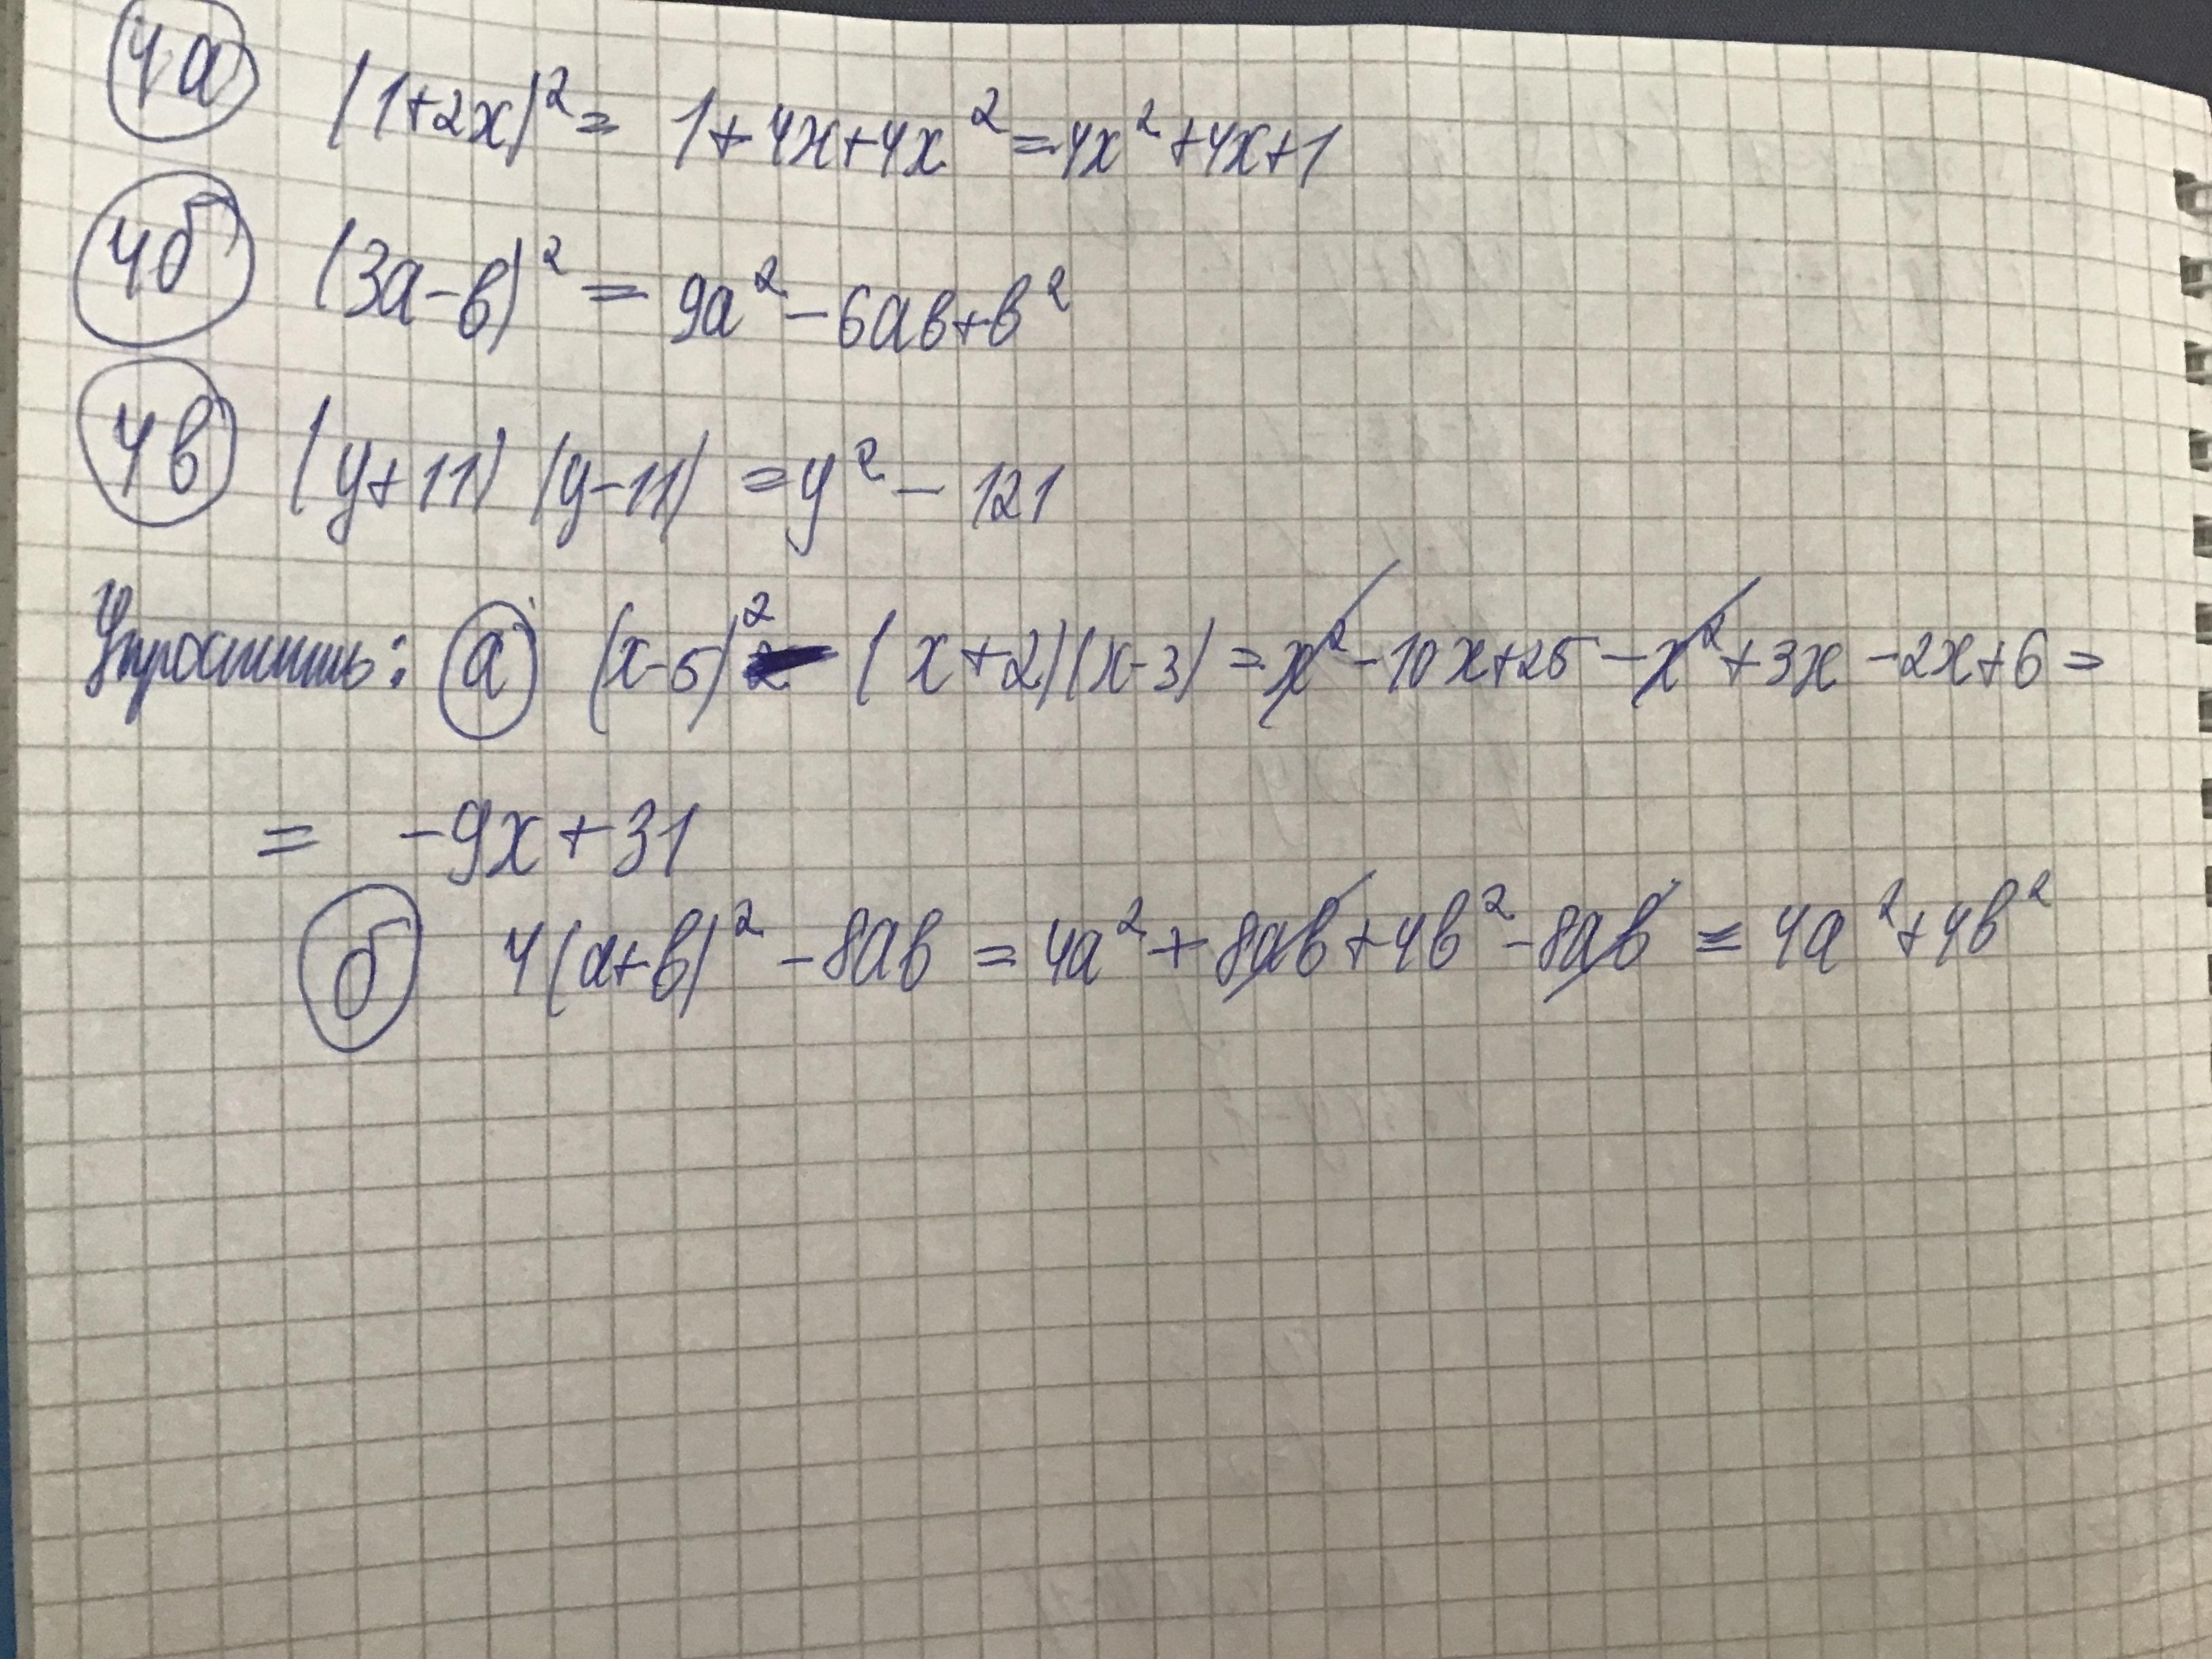 4а (1+2x)²= 1+4x+4x²=4x²+4x+1
4б (3a-b)²= 9a²-6ab+b²
4в (y+11)(y-11)=y²-121
Упростить: а) (x-5)² - (x+2)(x-3)=x²-10x+25-x²+3x-2x+6=
= -9x+31
б 4(a+b)²-8ab=4a²+8ab+4b²-8ab=4a²+4b²